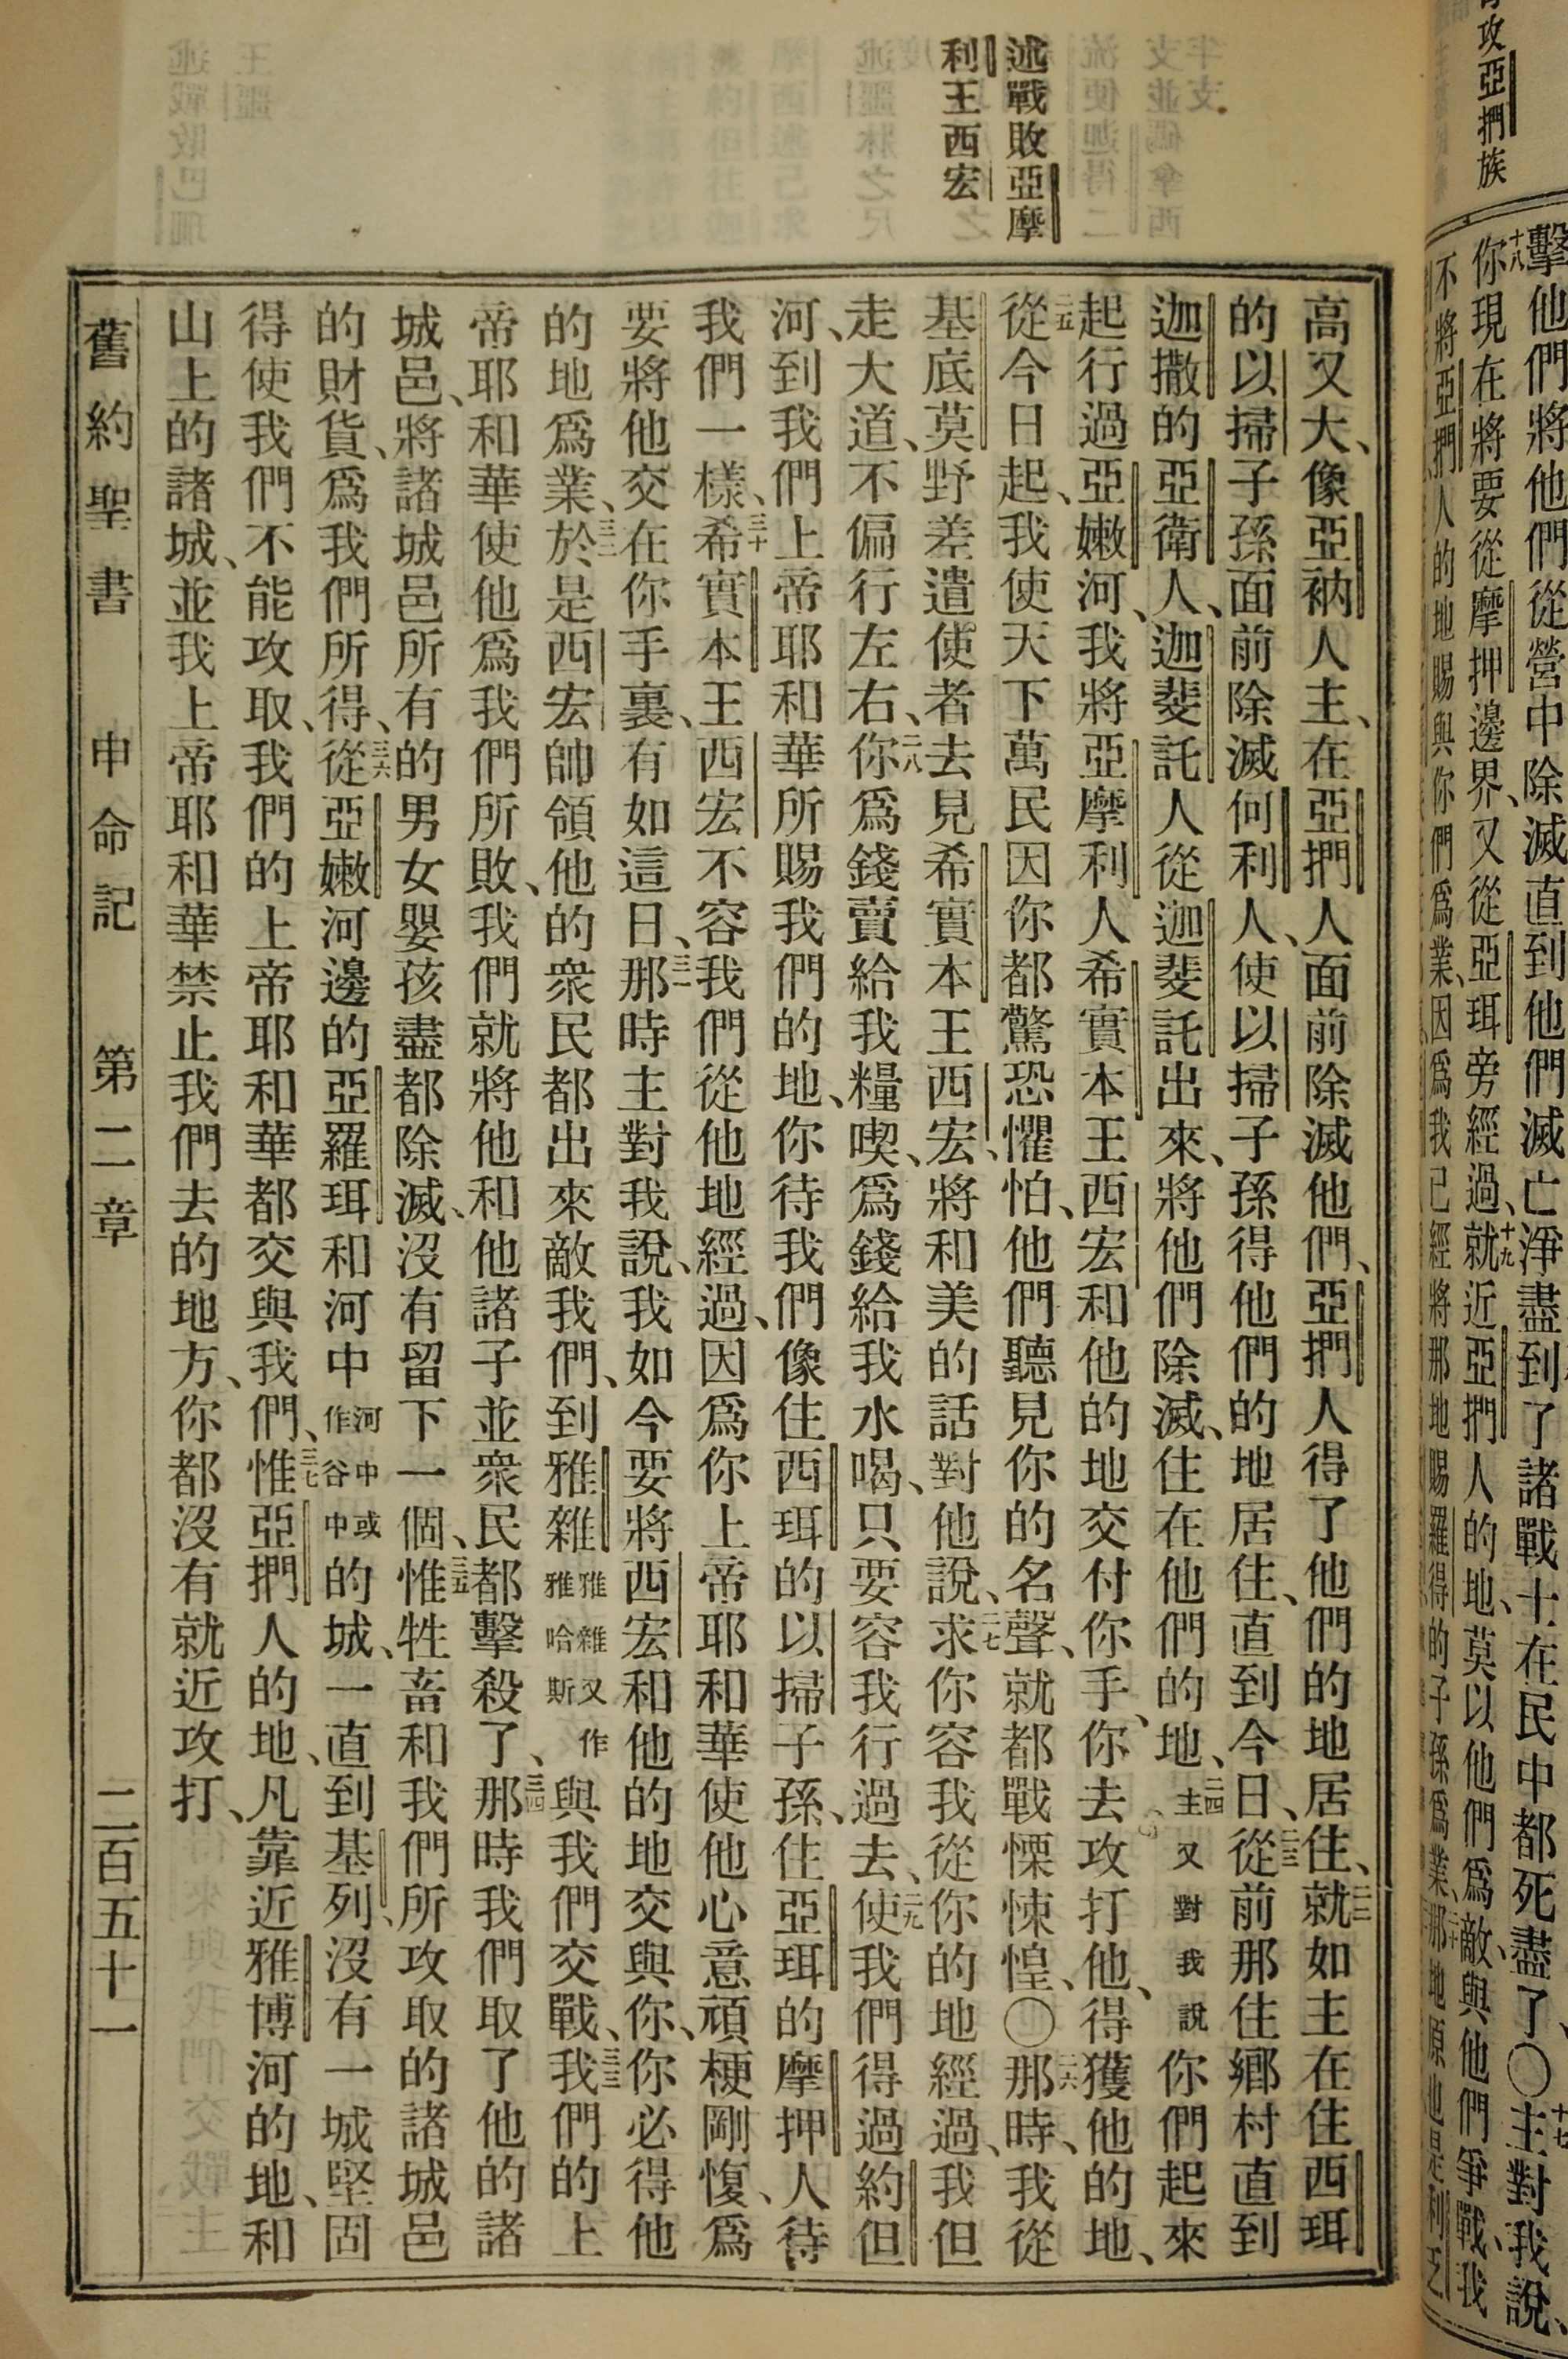 攻亞捫族
擊他們將他們從營中除滅直到他們滅亡淨盡到了諸戰士在民中都死盡了、〇十七主對我說、
十八你現在將要從摩押邊界、又從亞珥旁經過、十九就近亞捫人的地、莫以他們爲敵、與他們爭戰、我
不將亞捫人的地賜與你們爲業、因爲我已經將那地賜羅得的子孫爲業、二十那地原也是利乏
述戰敗亞摩
利王西宏
高又大、像亞衲人主、在亞捫人面前除滅他們、亞捫人得了他們的地居住、二二就如主在住西珥
的以掃子孫面前除滅何利人、使以掃子孫得他們的地居住、直到今日、二三從前那住鄉村直到
迦撒的亞衛人、迦斐託人從迦斐託出來、將他們除滅、住在他們的地、二四主又對我說你們起來
起行過亞嫩河、我將亞摩利人希實本王西宏和他的地交付你手、你去攻打他、得獲他的地、
二五從今日起、我使天下萬民因你都驚恐懼怕、他們聽見你的名聲、就都戰慄悚惶、〇二六那時、我從
基底莫野差遣使者去見希實本王西宏、將和美的話對他說、二七求你容我從你的地經過、我但
走大道、不偏行左右、二八你爲錢賣給我糧喫、爲錢給我水喝、只要容我行過去、二九使我們得過約但
河、到我們上帝耶和華所賜我們的地、你待我們像住西珥的以掃子孫、住亞珥的摩押人待
我們一樣、三十希實本王西宏不容我們從他地經過、因爲你上帝耶和華使他心意頑梗剛愎、爲
要將他交在你手裏、有如這日、三一那時主對我說、我如今要將西宏和他的地交與你、你必得他
的地爲業、三二於是西宏帥領他的衆民都出來敵我們、到雅雜雅雜又作雅哈斯與我們交戰、三三我們的上
帝耶和華使他爲我們所敗、我們就將他和他諸子並衆民都擊殺了、三四那時我們取了他的諸
城邑、將諸城邑所有的男女嬰孩盡都除滅、沒有留下一個、三五惟牲畜和我們所攻取的諸城邑
的財貨、爲我們所得、三六從亞嫩河邊的亞羅珥和河中河中或作谷中的城、一直到基列、沒有一城堅固
得使我們不能攻取、我們的上帝耶和華都交與我們、三七惟亞捫人的地、凡靠近雅博河的地、和
山上的諸城、並我上帝耶和華禁止我們去的地方、你都沒有就近攻打、
舊約聖書 申命記 第二章 二百五十一